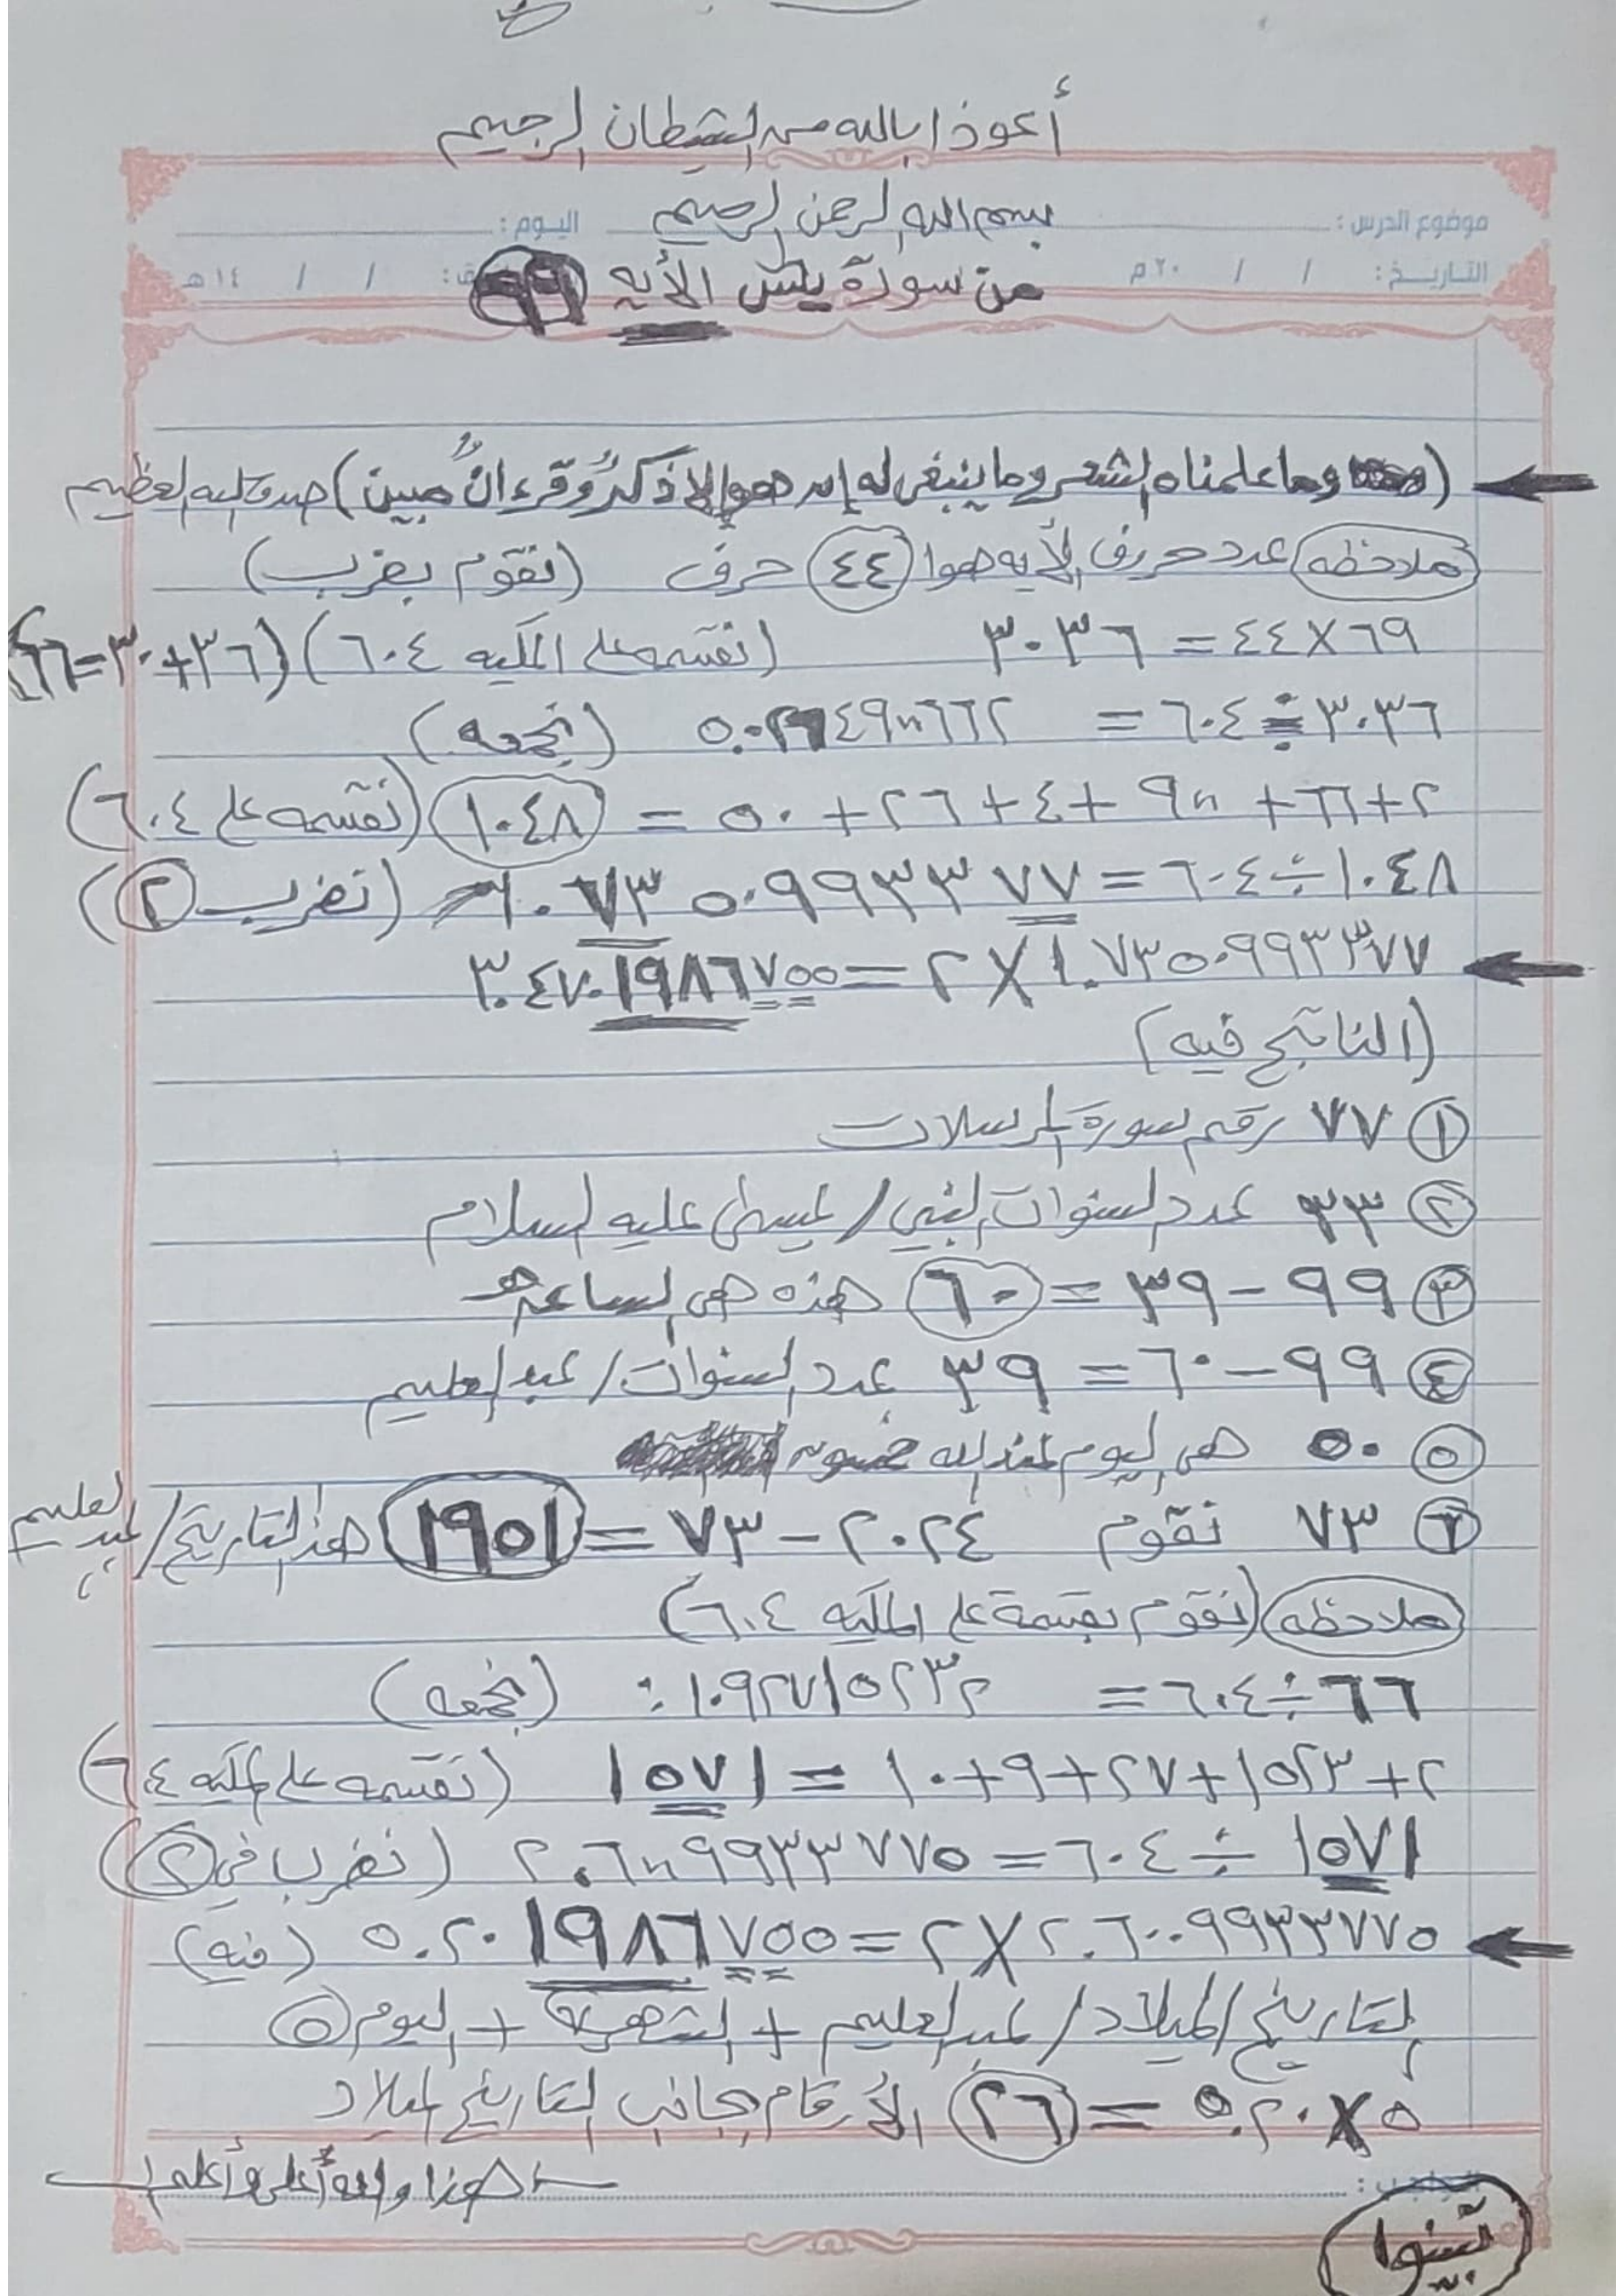 أعوذ بالله من الشيطان الرجيم
بسم الله الرحمن الرحيم
موضوع الدرس : اليوم :
التاريخ : / / ٢٠ م / / ١٤ هـ
من سورة يس الأيه ٦٩
(وما علمناه الشعر وما ينبغي له إن هو إلا ذكرٌ وقرءانٌ مبين) صدق الله العظيم
ملاحظه عدد حروف الأيه هوا ٤٤ حرف (نقوم بضرب)
٦٩ × ٤٤ = ٣٠٣٦ (نقسمه على المكيه ٦٠٤) (٣٦+٣٠=٦٦)
٣٠٣٦ ÷ ٦٠٤ = ٥.٠٢٦٤٩٠٠٦٦٢ (نجمعه)
٢+٦٦+ ٩٠٠ +٤+٢٦+٥٠ = ١٠٤٨ (نقسمه على ٦٠٤)
١٠٤٨ ÷ ٦٠٤ = ١.٧٣٥٠٩٩٣٣٧٧ (نضرب ٢)
١.٧٣٥٠٩٩٣٣٧٧ × ٢ = ٣.٤٧٠١٩٨٦٧٥٥
(الناتج فيه)
١ ٧٧ رقم سورة المرسلات
٢ ٣٣ عدد السنوات النبي / عيسى عليه السلام
٣ ٩٩ - ٣٩ = ٦٠ هذه هي الساعه
٤ ٩٩ - ٦٠ = ٣٩ عدد السنوات / عبد العليم
٥ ٥٠ هي اليوم عند الله خمسون
٦ ٧٣ نقوم ٢٠٢٤ - ٧٣ = ١٩٥١ هذا التاريخ / عبد العليم
ملاحظه (نقوم بقسمة على المكيه ٦٠٤)
٦٦ ÷ ٦٠٤ = ٠.١٠٩٢٧١٥٢٣٢ (نجمعه)
٢+١٥٢٣+٢٧+٩+١٠ = ١٥٧١ (نقسمه على المكيه ٦٠٤)
١٥٧١ ÷ ٦٠٤ = ٢.٦٠٠٩٩٣٣٧٧٥ (نضرب في ٢)
٢.٦٠٠٩٩٣٣٧٧٥ × ٢ = ٥.٢٠١٩٨٦٧٥٥ (فيه)
التاريخ الميلاد / عبد العليم + الشهر ٧ + اليوم ٥
٥ × ٥.٢٠ = ٢٦ الأرقام بجانب التاريخ الميلاد
هذا والله أعلى وأعلم
الواجب :